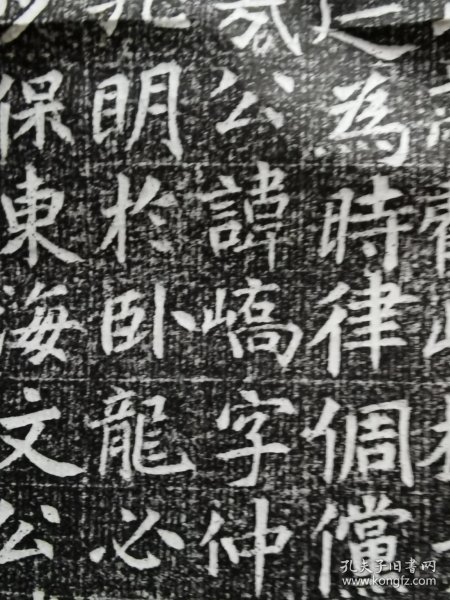 為時律倜儻
公諱嶠字仲
明於臥龍必
保東海文公
孔夫子旧书网
www.kongfz.com